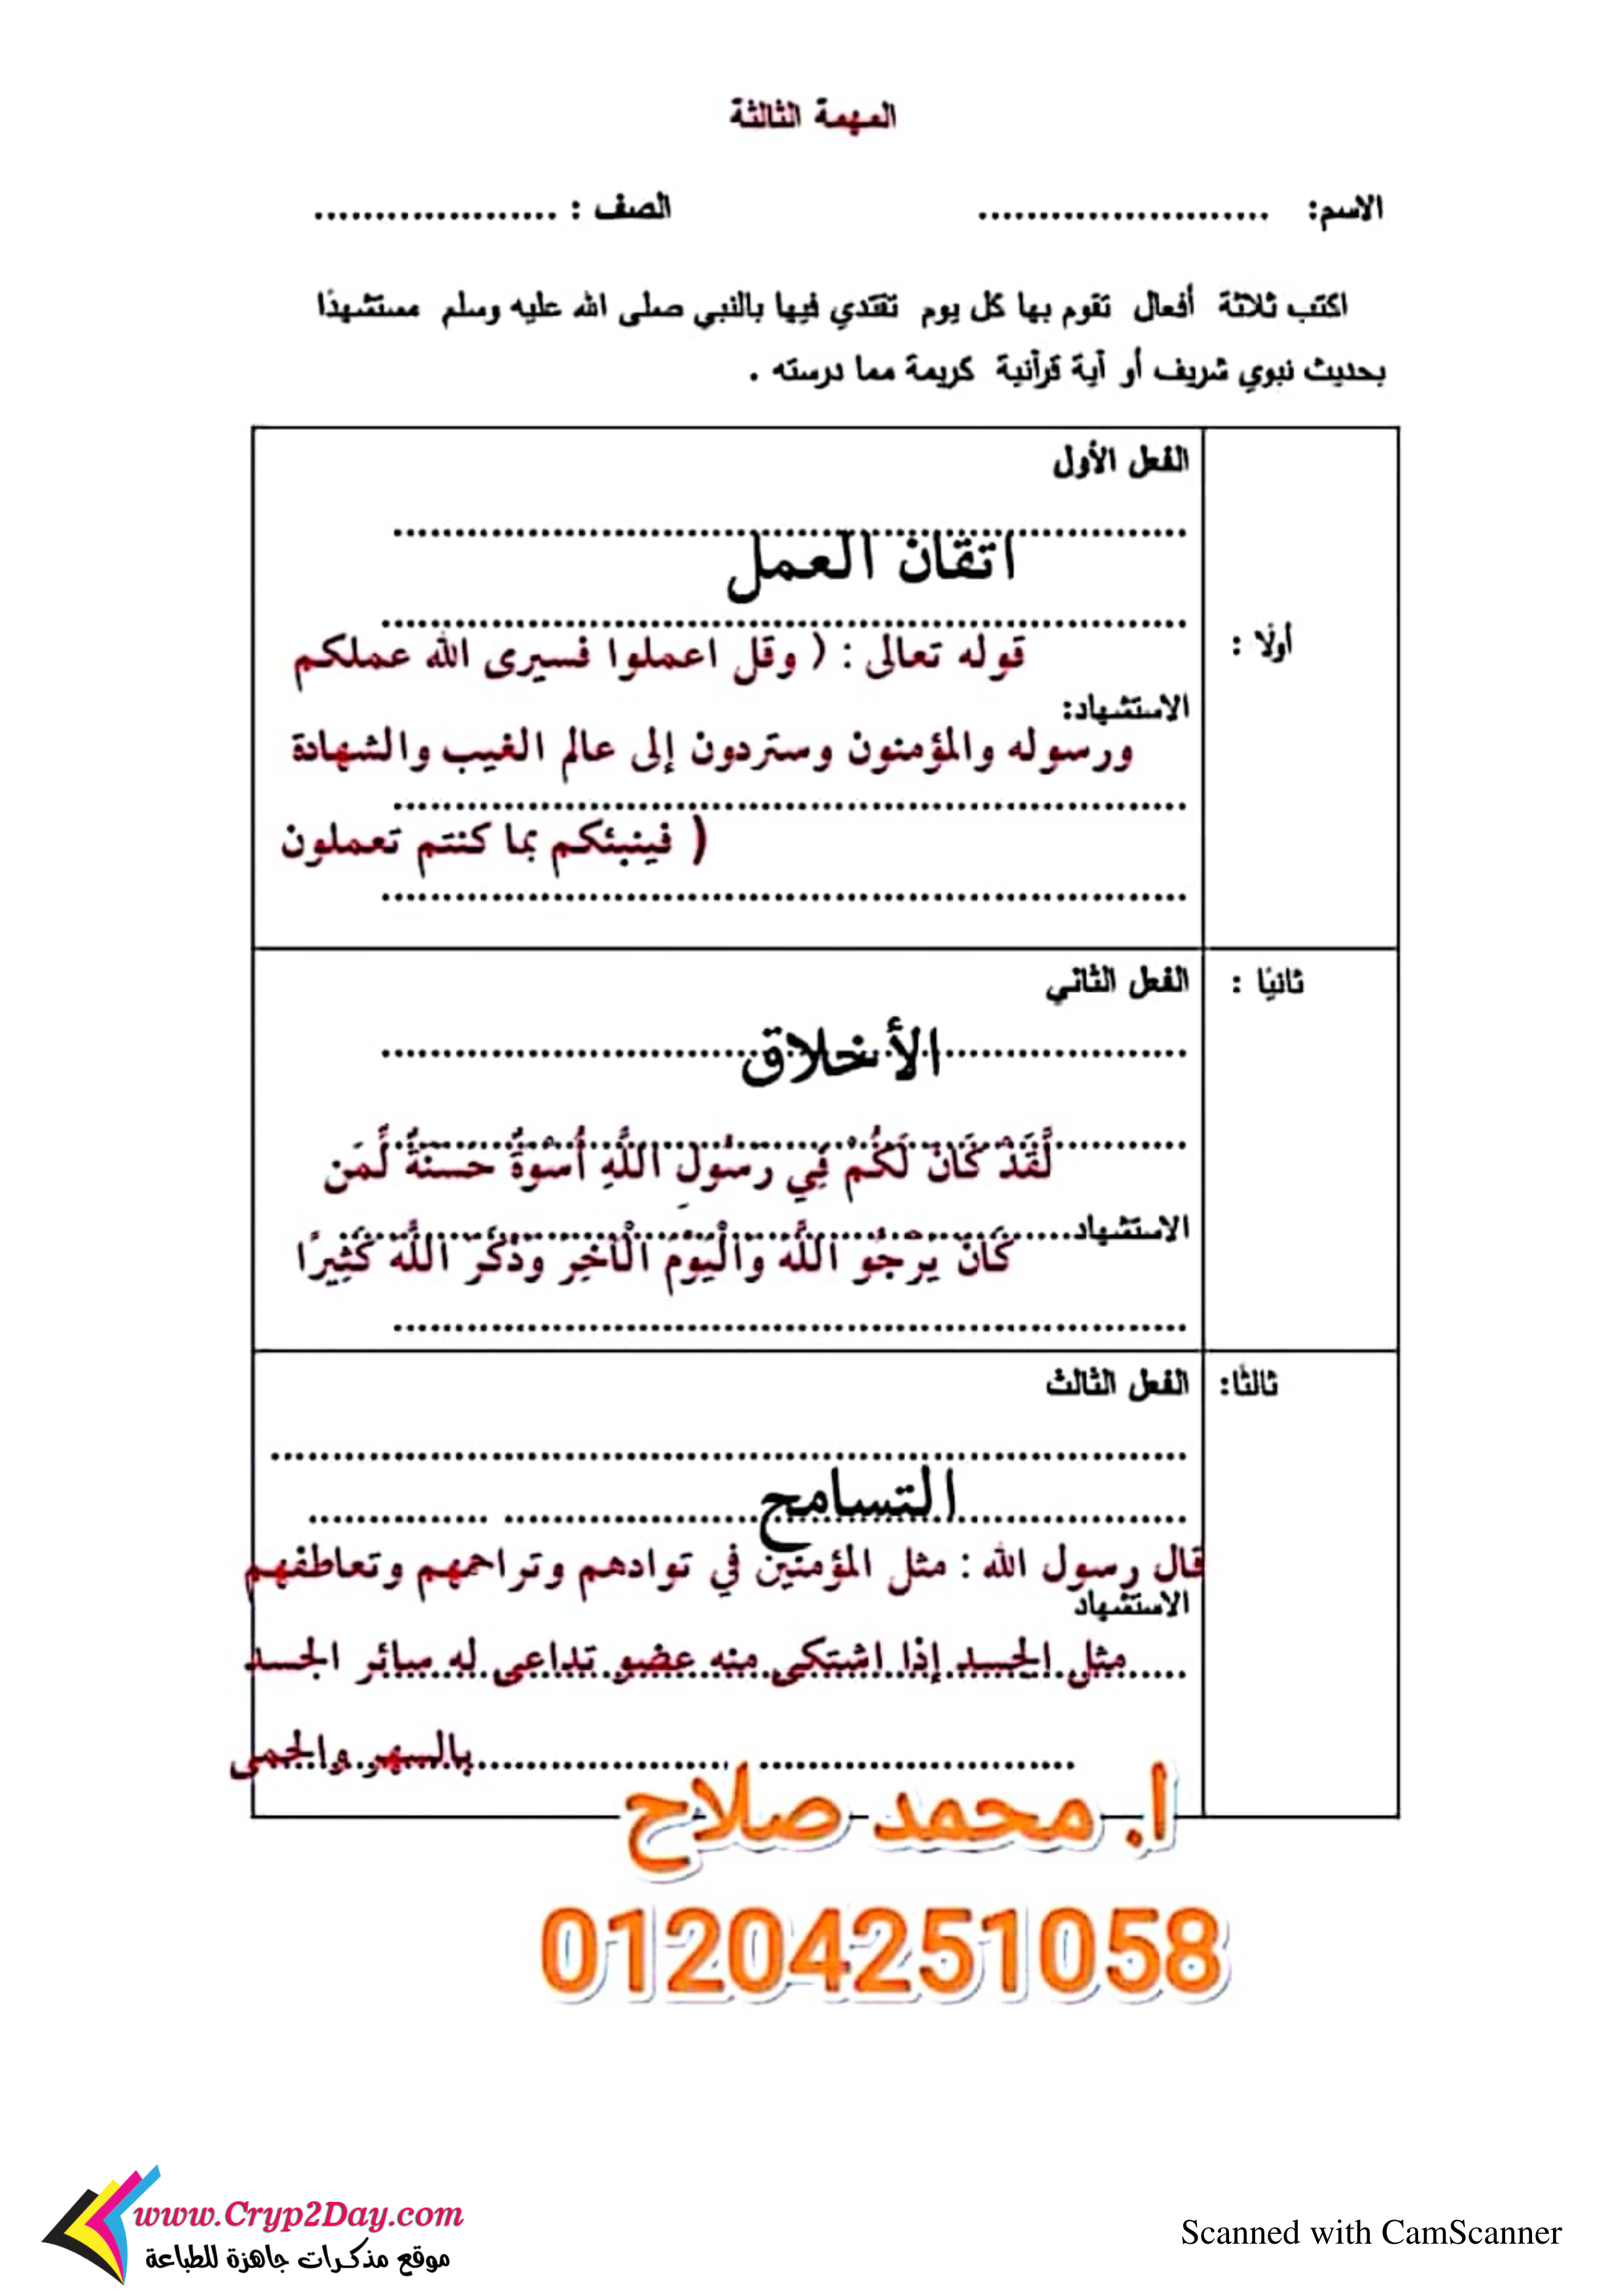 المهمة الثالثة
الاسم: ........................ الصف : ....................
اكتب ثلاثة أفعال تقوم بها كل يوم تقتدي فيها بالنبي صلى الله عليه وسلم مستشهدًا
بحديث نبوي شريف أو آية قرآنية كريمة مما درسته .
الفعل الأول
اتقان العمل
أولًا :
قوله تعالى : ( وقل اعملوا فسيرى الله عملكم
الاستشهاد:
ورسوله والمؤمنون وستردون إلى عالم الغيب والشهادة
( فينبئكم بما كنتم تعملون
ثانيًا :
الفعل الثاني
الأخلاق
لَّقَدْ كَانَ لَكُمْ فِي رَسُولِ اللَّهِ أُسْوَةٌ حَسَنَةٌ لِّمَن
الاستشهاد
كَانَ يَرْجُو اللَّهَ وَالْيَوْمَ الْآخِرَ وَذَكَرَ اللَّهَ كَثِيرًا
ثالثًا:
الفعل الثالث
التسامح
قال رسول الله : مثل المؤمنين في توادهم وتراحمهم وتعاطفهم
الاستشهاد
مثل الجسد إذا اشتكى منه عضو تداعى له سائر الجسد
بالسهر والحمى
أ. محمد صلاح
01204251058
www.Cryp2Day.com
موقع مذكرات جاهزة للطباعة
Scanned with CamScanner